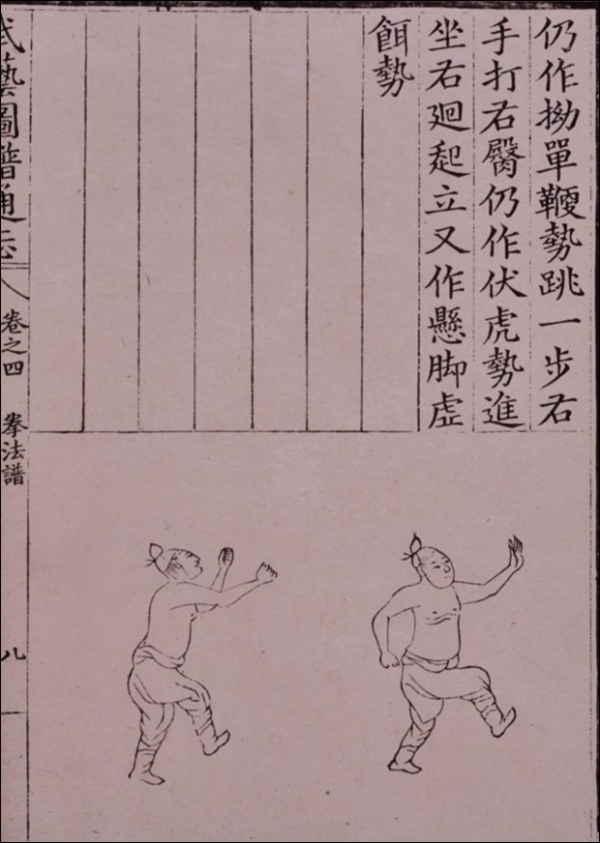 仍作拗單鞭勢跳一步右
手打右臀仍作伏虎勢進
坐右廻起立又作懸脚虛
餌勢
武藝圖譜通志
卷之四 拳法譜
八